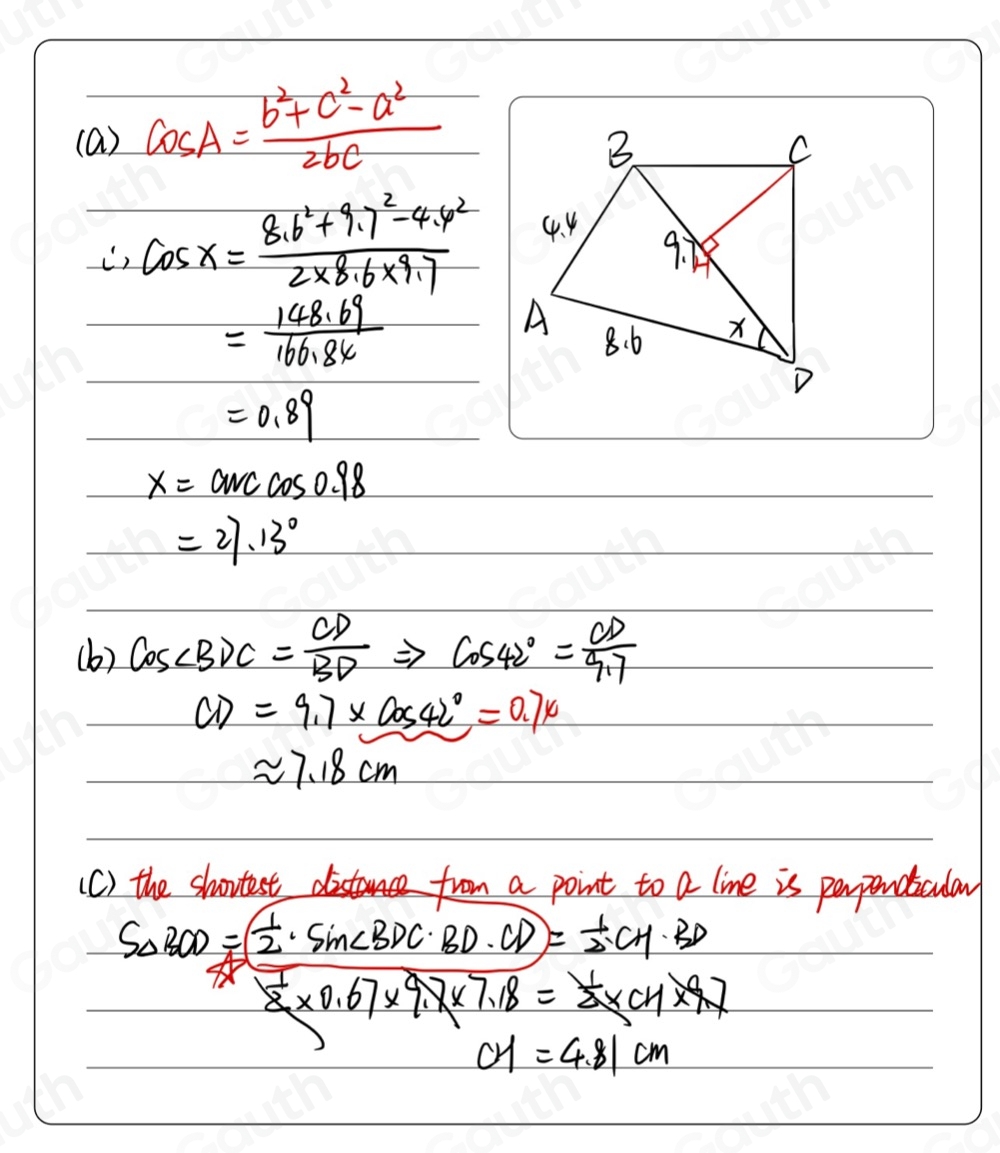 (a) CosA = b²+c²-a² / 2bc
∴ Cosx = 8.6²+9.7²-4.4² / 2×8.6×9.7
= 148.69 / 166.84
= 0.89
x = arc cos 0.98
= 27.13°
B
C
4.4
9.7
H
A
8.6
x
D
(b) Cos∠BDC = CD/BD ⇒ Cos42° = CD/9.7
CD = 9.7 × Cos42° = 0.74
≈ 7.18 cm
(C) the shortest distance from a point to a line is perpendicular
S△BCD = 1/2 · Sin∠BDC · BD · CD = 1/2 CH · BD
1/2 × 0.67 × 9.7 × 7.18 = 1/2 × CH × 9.7
CH = 4.81 cm
Gauth